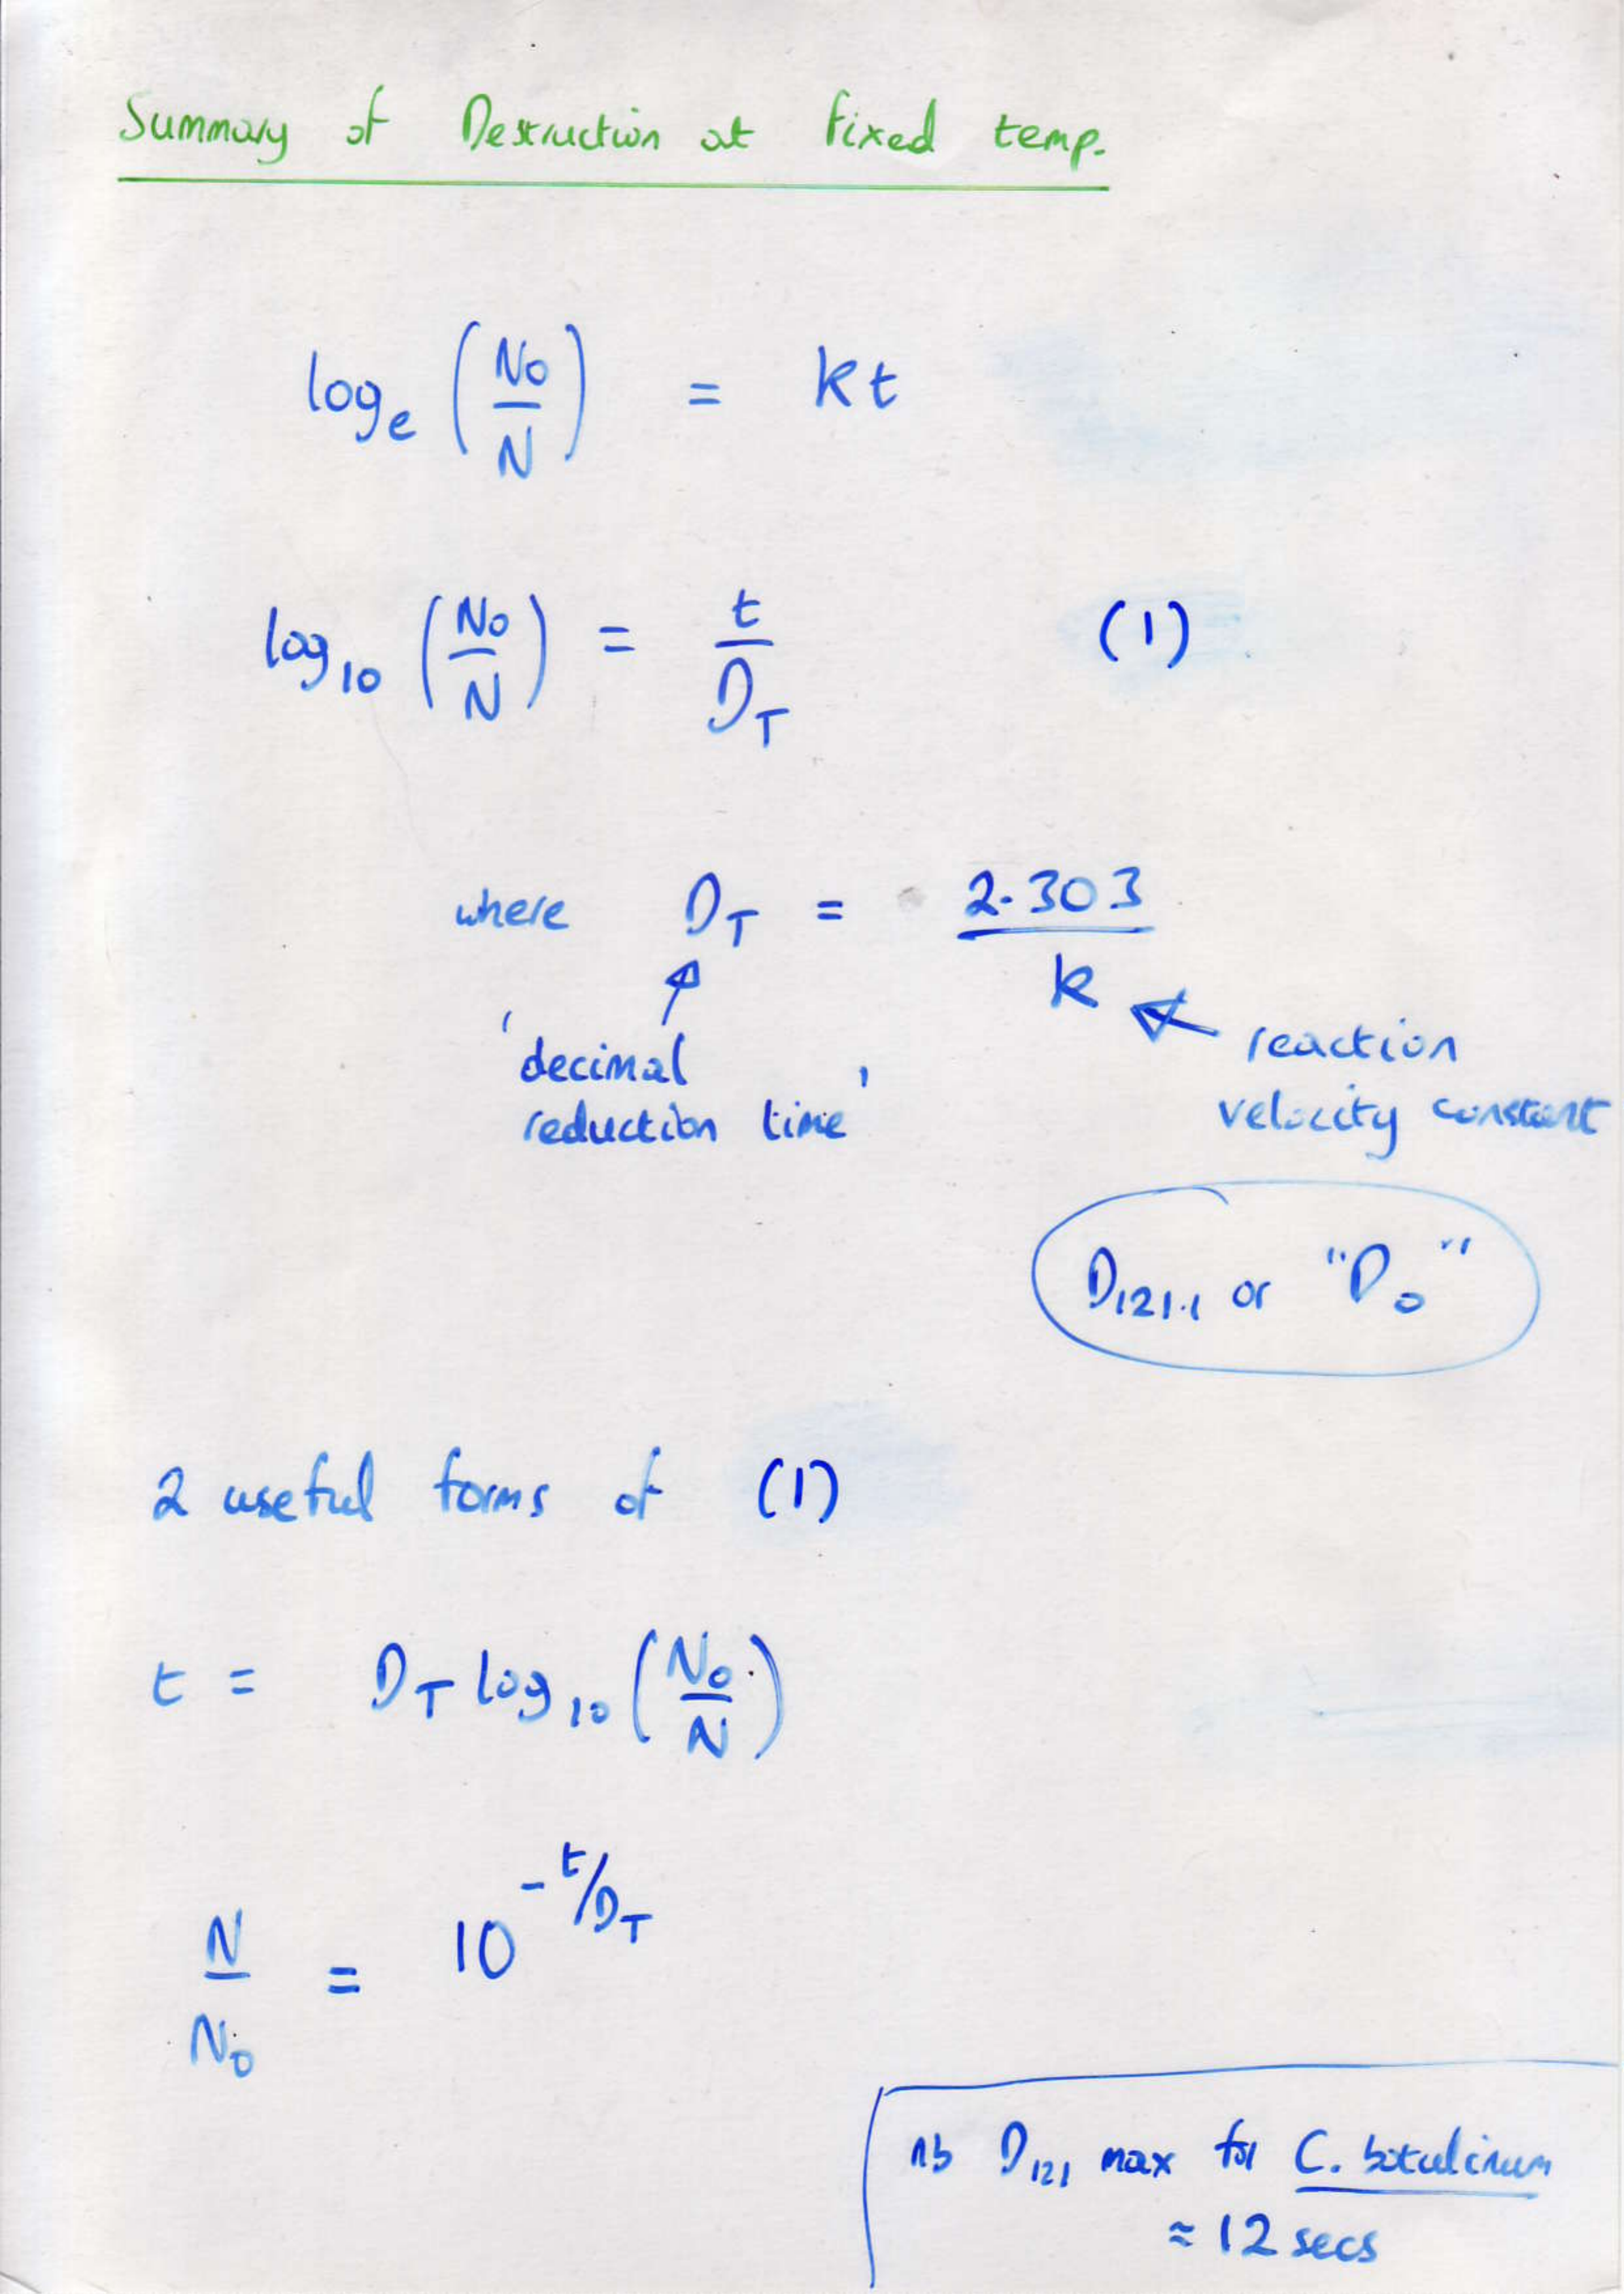 Summary of Destruction at fixed temp.
logₑ (N₀/N) = kt
log₁₀ (N₀/N) = t/D_T (1)
where D_T = 2.303/k
'decimal
reduction time'
reaction
velocity constant
D₁₂₁.₁ or "D₀"
2 useful forms of (1)
t = D_T log₁₀ (N₀/N)
N/N₀ = 10^(-t/D_T)
nb D₁₂₁ max for C. botulinum
≈ 12 secs